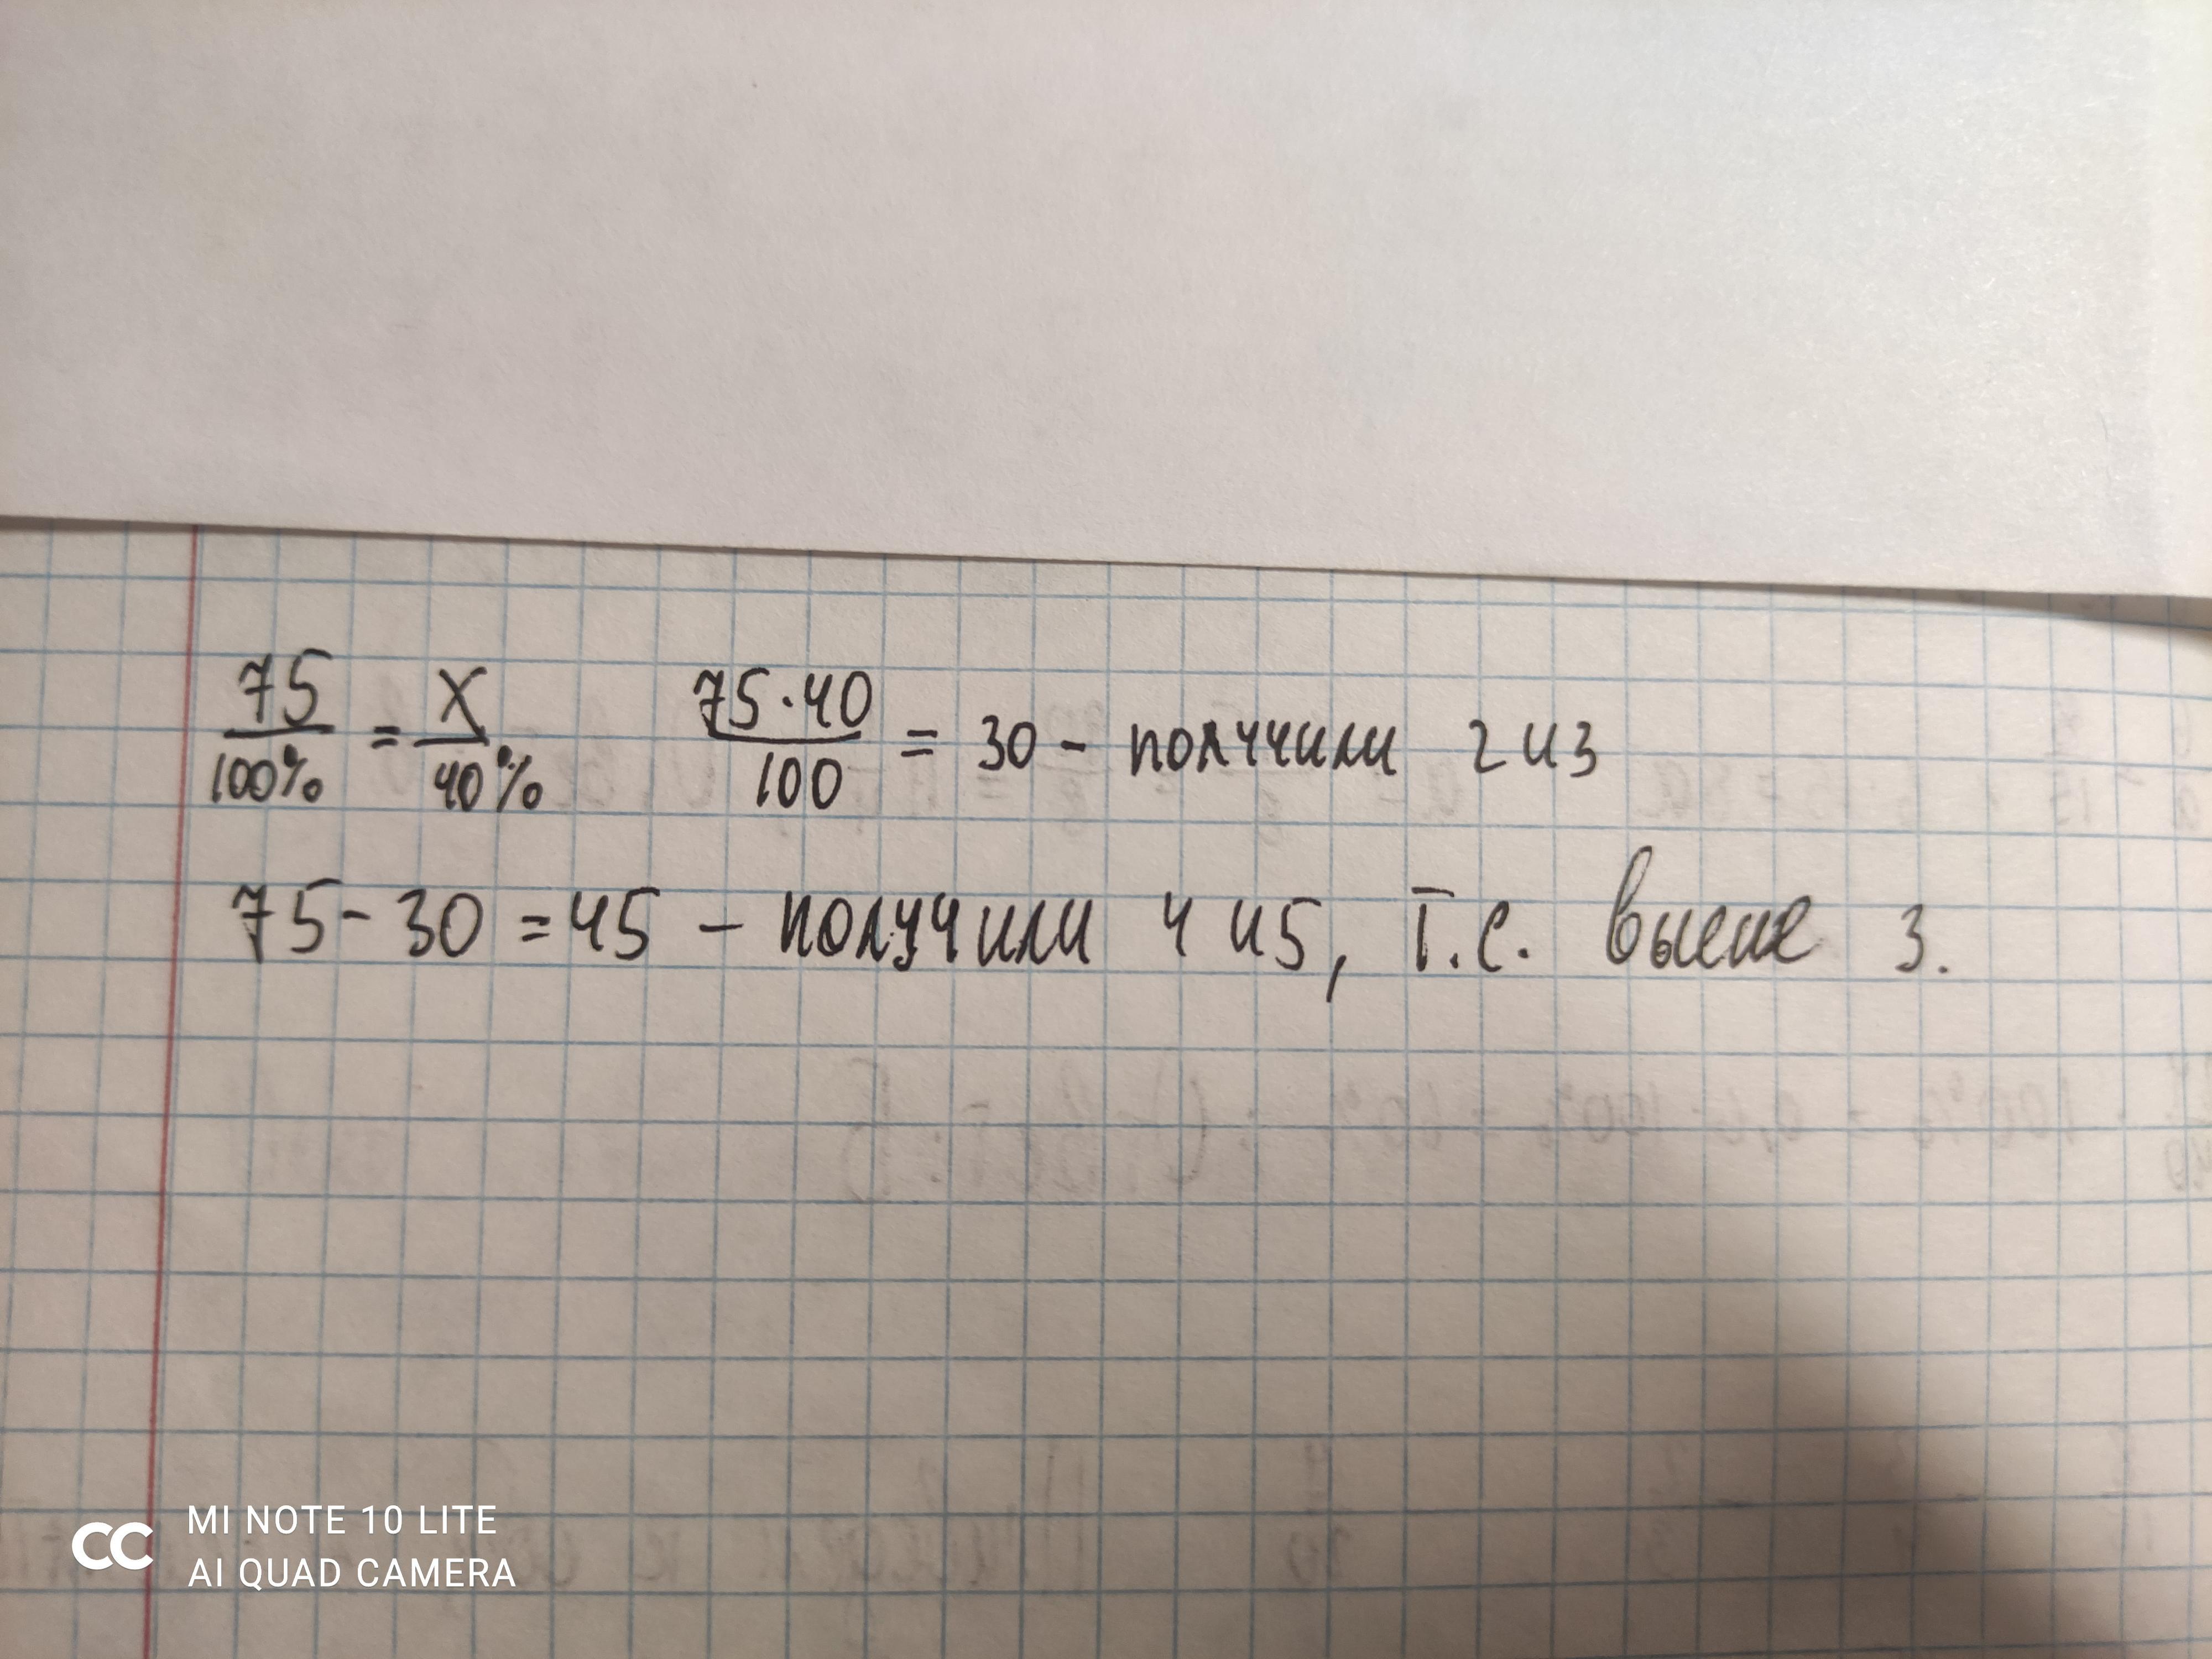 75/100% = X/40% 75·40/100 = 30 - получили 2 и 3
75 - 30 = 45 - получили 4 и 5, т.е. выше 3.
MI NOTE 10 LITE
AI QUAD CAMERA